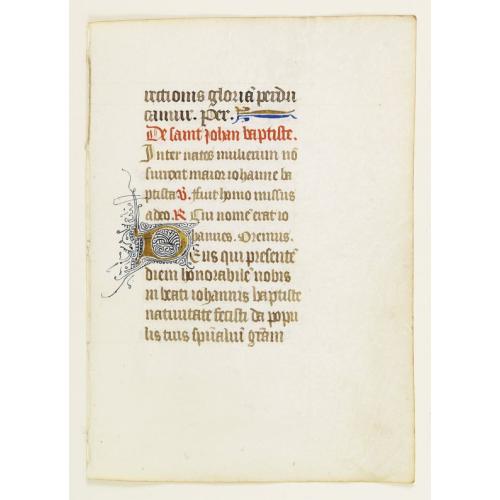 rectionis gloriā perdu
camur. Per.
De saint johan baptiste.
Inter natos mulierum nō
surrexit maior iohanne ba
ptista V. Fuit homo missus
a deo. R Cui nomē erat io
hannes. Oremus.
Deus qui presentē
diem honorabilē nobis
in beati iohannis baptiste
nativitate fecisti da popu
lis tuis spūaliū grām